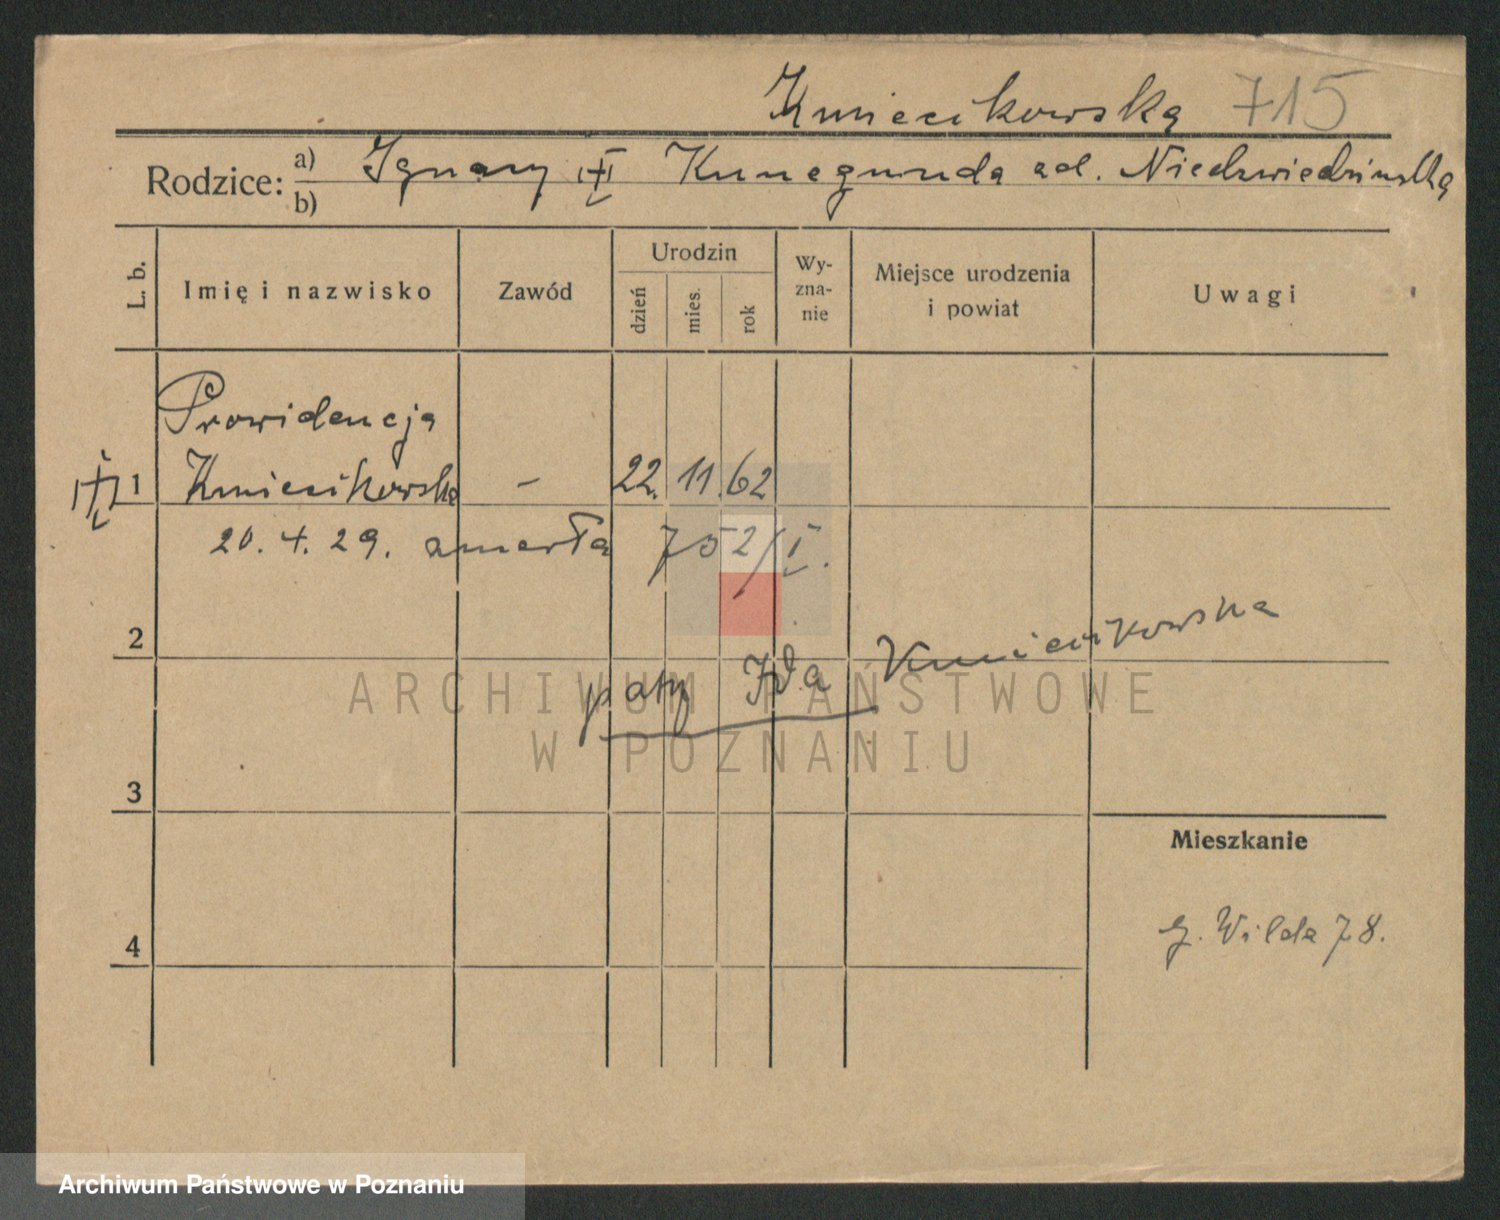 Kmiecikowska 715
Rodzice: a) Ignacy Kunegunda zd. Niedzwiedzinska
b)
L. b. Imię i nazwisko Zawód Urodzin Wy-zna-nie Miejsce urodzenia i powiat Uwagi
dzień mies. rok
Prowidencja
1 Kmiecikowska – 22. 11. 62
20. 4. 29. zmarła 752/I.
2
patrz Ida Kmiecikowska
ARCHIWUM PAŃSTWOWE
W POZNANIU
3
Mieszkanie
4 G. Wilda 78.
Archiwum Państwowe w Poznaniu